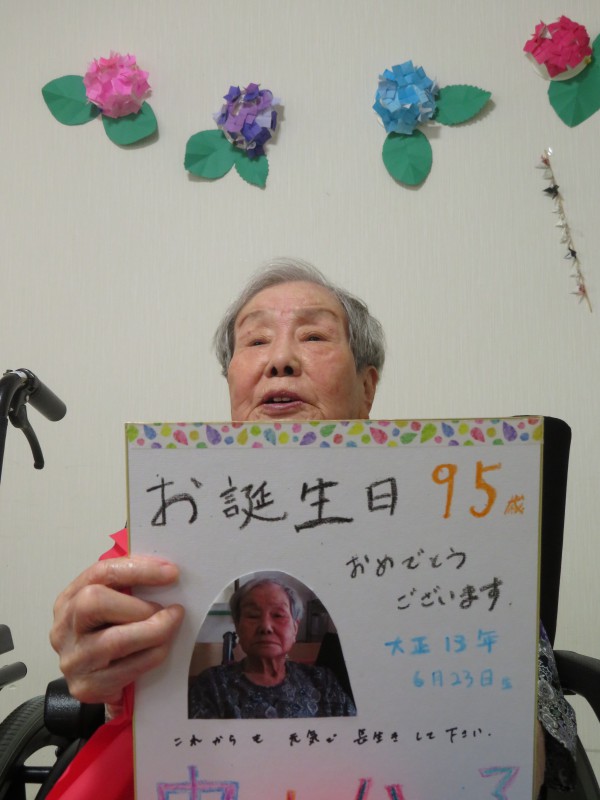 お誕生日 95歳
おめでとう
ございます.
大正13年
6月23日生
これからも 元気で 長生きして下さい.